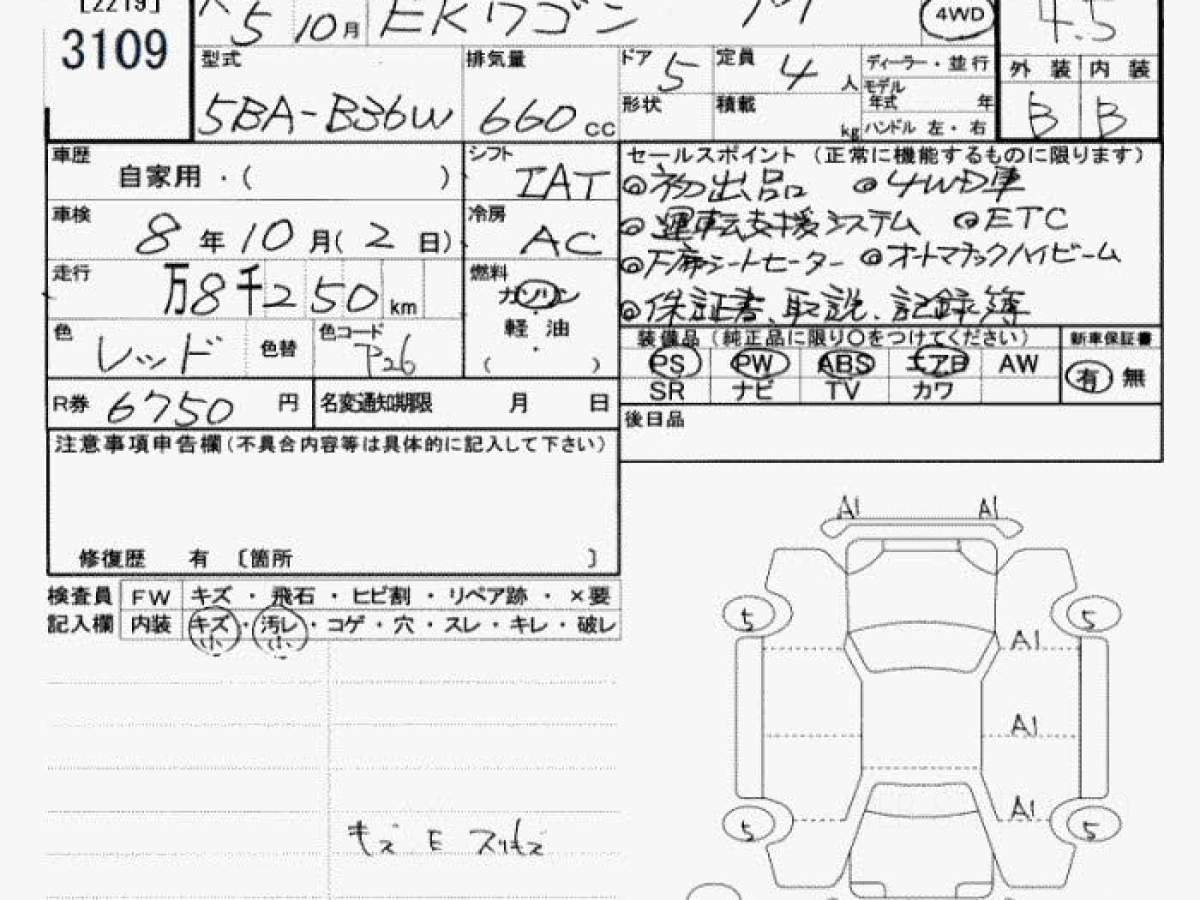 [2219]
3109
5 10月 EKワゴン M 4WD 4.5
型式 5BA-B36W
排気量 660 cc
ドア 5 定員 4 人
形状 積載 kg
ディーラー・並行
モデル年式 年
ハンドル 左・右
外装 内装
B B
車歴 自家用・( )
シフト IAT
車検 8年10月(2日)
冷房 AC
走行 万8千250km
燃料 ガソリン
軽油
( ・ )
色 レッド 色替 色コード P26
R券 6750円 名変通知期限 月 日
セールスポイント(正常に機能するものに限ります)
◎初出品 ◎4WD車
◎運転支援システム ◎ETC
◎F席シートヒーター ◎オートマチックハイビーム
◎保証書、取説、記録簿
装備品(純正品に限り○をつけてください) 新車保証書
PS PW ABS エアB AW 有 無
SR ナビ TV カワ
後日品
注意事項申告欄(不具合内容等は具体的に記入して下さい)
修復歴 有 〔箇所 〕
検査員 FW キズ・飛石・ヒビ割・リペア跡・×要
記入欄 内装 キズ・汚レ・コゲ・穴・スレ・キレ・破レ
小 小
キズ E スリキズ
A1 A1
5 5
A1
A1
A1
5 5